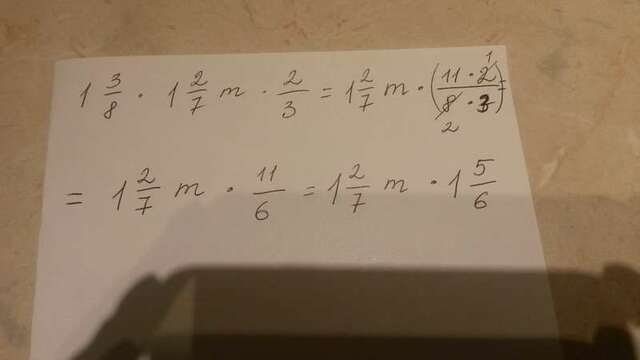 1 3/8 · 1 2/7 m · 2/3 = 1 2/7 m · (11 · 2 1 / 8 · 3 2) =
= 1 2/7 m · 11/6 = 1 2/7 m · 1 5/6